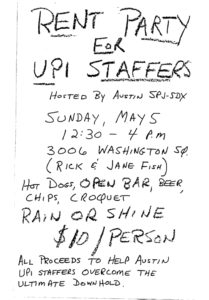 RENT PARTY
FOR
UPI STAFFERS
HOSTED BY AUSTIN SPJ-SDX
SUNDAY, MAY 5
12:30 - 4 P.M
3006 WASHINGTON SQ.
(RICK & JANE FISH)
HOT DOGS, OPEN BAR, BEER,
CHIPS, CROQUET
RAIN OR SHINE
$10/PERSON
ALL PROCEEDS TO HELP AUSTIN
UPI STAFFERS OVERCOME THE
ULTIMATE DOWNHOLD.